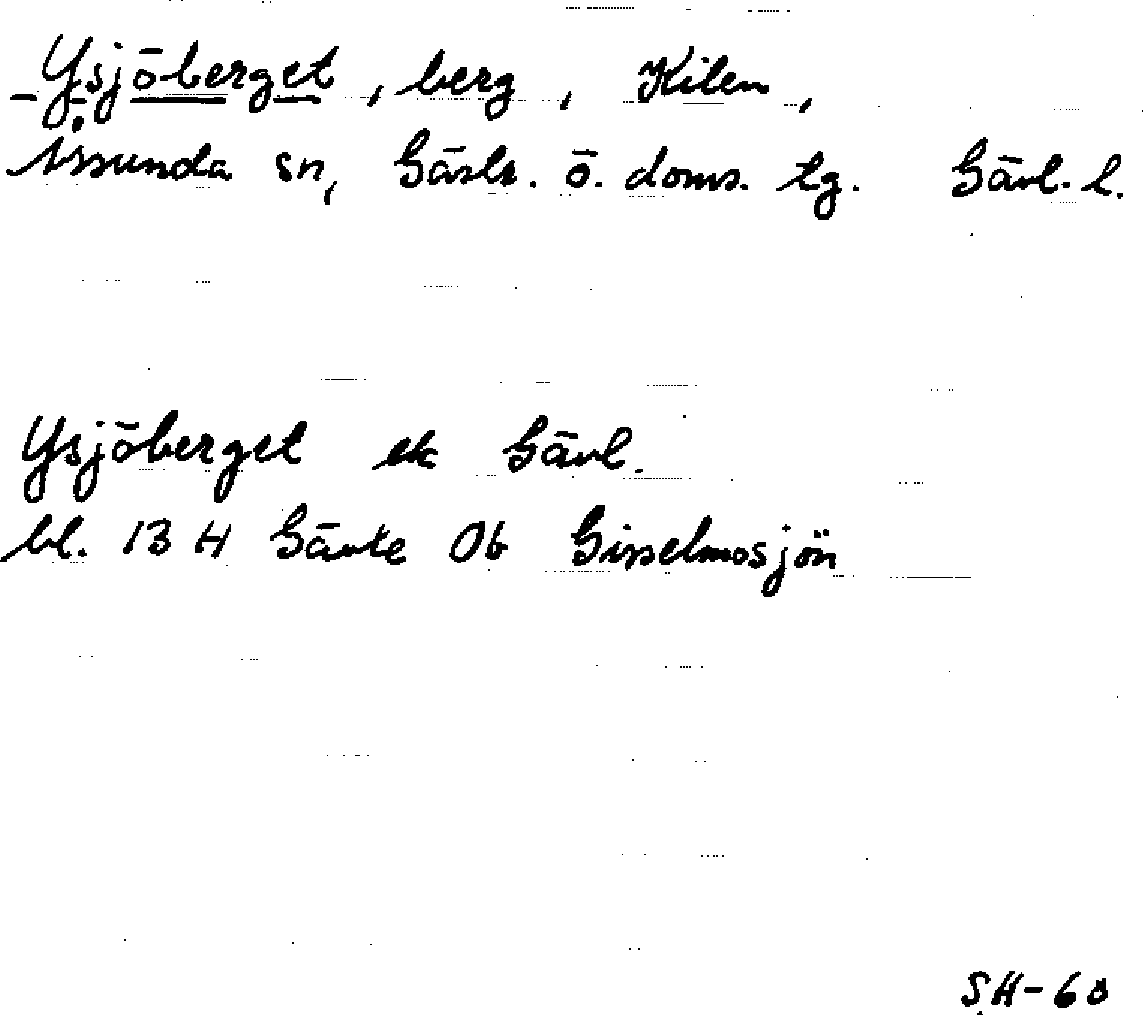 Ysjöberget, berg, Kilen,
Årsunda sn, Gästr. ö. doms. tg. Gävl. l.
Ysjöberget ek Gävl.
bl. 13 H Gävle 0b Gisselmosjön
SH-63